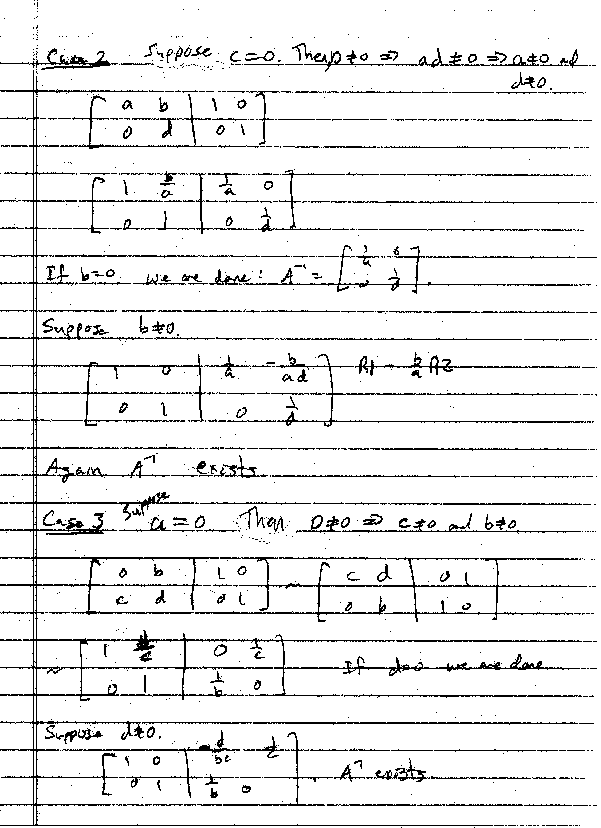 Case 2 Suppose c=0. Then D≠0 ⇒ ad≠0 ⇒ a≠0 and
d≠0.
[ a b | 1 0 ]
[ 0 d | 0 1 ]
[ 1 b/a | 1/a 0 ]
[ 0 1 | 0 1/d ]
If b=0, we are done: A⁻¹ = [ 1/a 0 ]
[ 0 1/d ].
Suppose b≠0.
[ 1 0 | 1/a -b/ad ] R1 - b/a R2
[ 0 1 | 0 1/d ]
Again A⁻¹ exists
Case 3 Suppose a=0. Then D≠0 ⇒ c≠0 and b≠0
[ 0 b | 1 0 ] ~ [ c d | 0 1 ]
[ c d | 0 1 ] [ 0 b | 1 0 ]
~ [ 1 d/c | 0 1/c ] If d=0 we are done
[ 0 1 | 1/b 0 ]
Suppose d≠0.
[ 1 0 | -d/bc 1/c ]
[ 0 1 | 1/b 0 ] . A⁻¹ exists